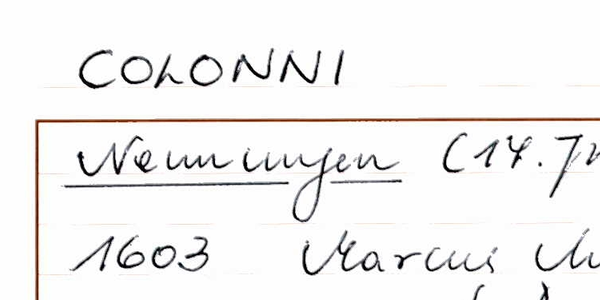 COLONNI
Nenningen (14. Jh
1603 Marcus